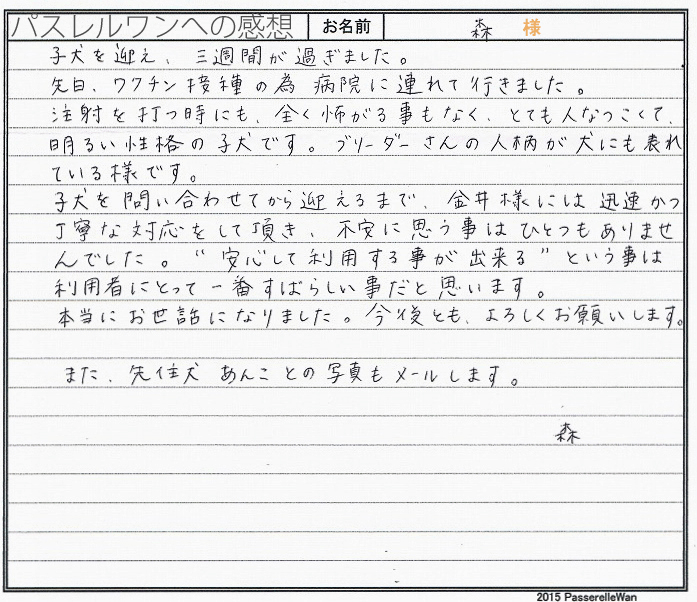 パスレルワンへの感想 お名前 森 様
子犬を迎え、三週間が過ぎました。
先日、ワクチン接種の為病院に連れて行きました。
注射を打つ時にも、全く怖がる事もなく、とても人なつっこくて、
明るい性格の子犬です。ブリーダーさんの人柄が犬にも表れ
ている様です。
子犬を問い合わせてから迎えるまで、金井様には迅速かつ
丁寧な対応をして頂き、不安に思う事はひとつもありませ
んでした。“安心して利用する事が出来る”という事は
利用者にとって一番すばらしい事だと思います。
本当にお世話になりました。今後とも、よろしくお願いします。
また、先住犬あんことの写真もメールします。
森
2015 PasserelleWan